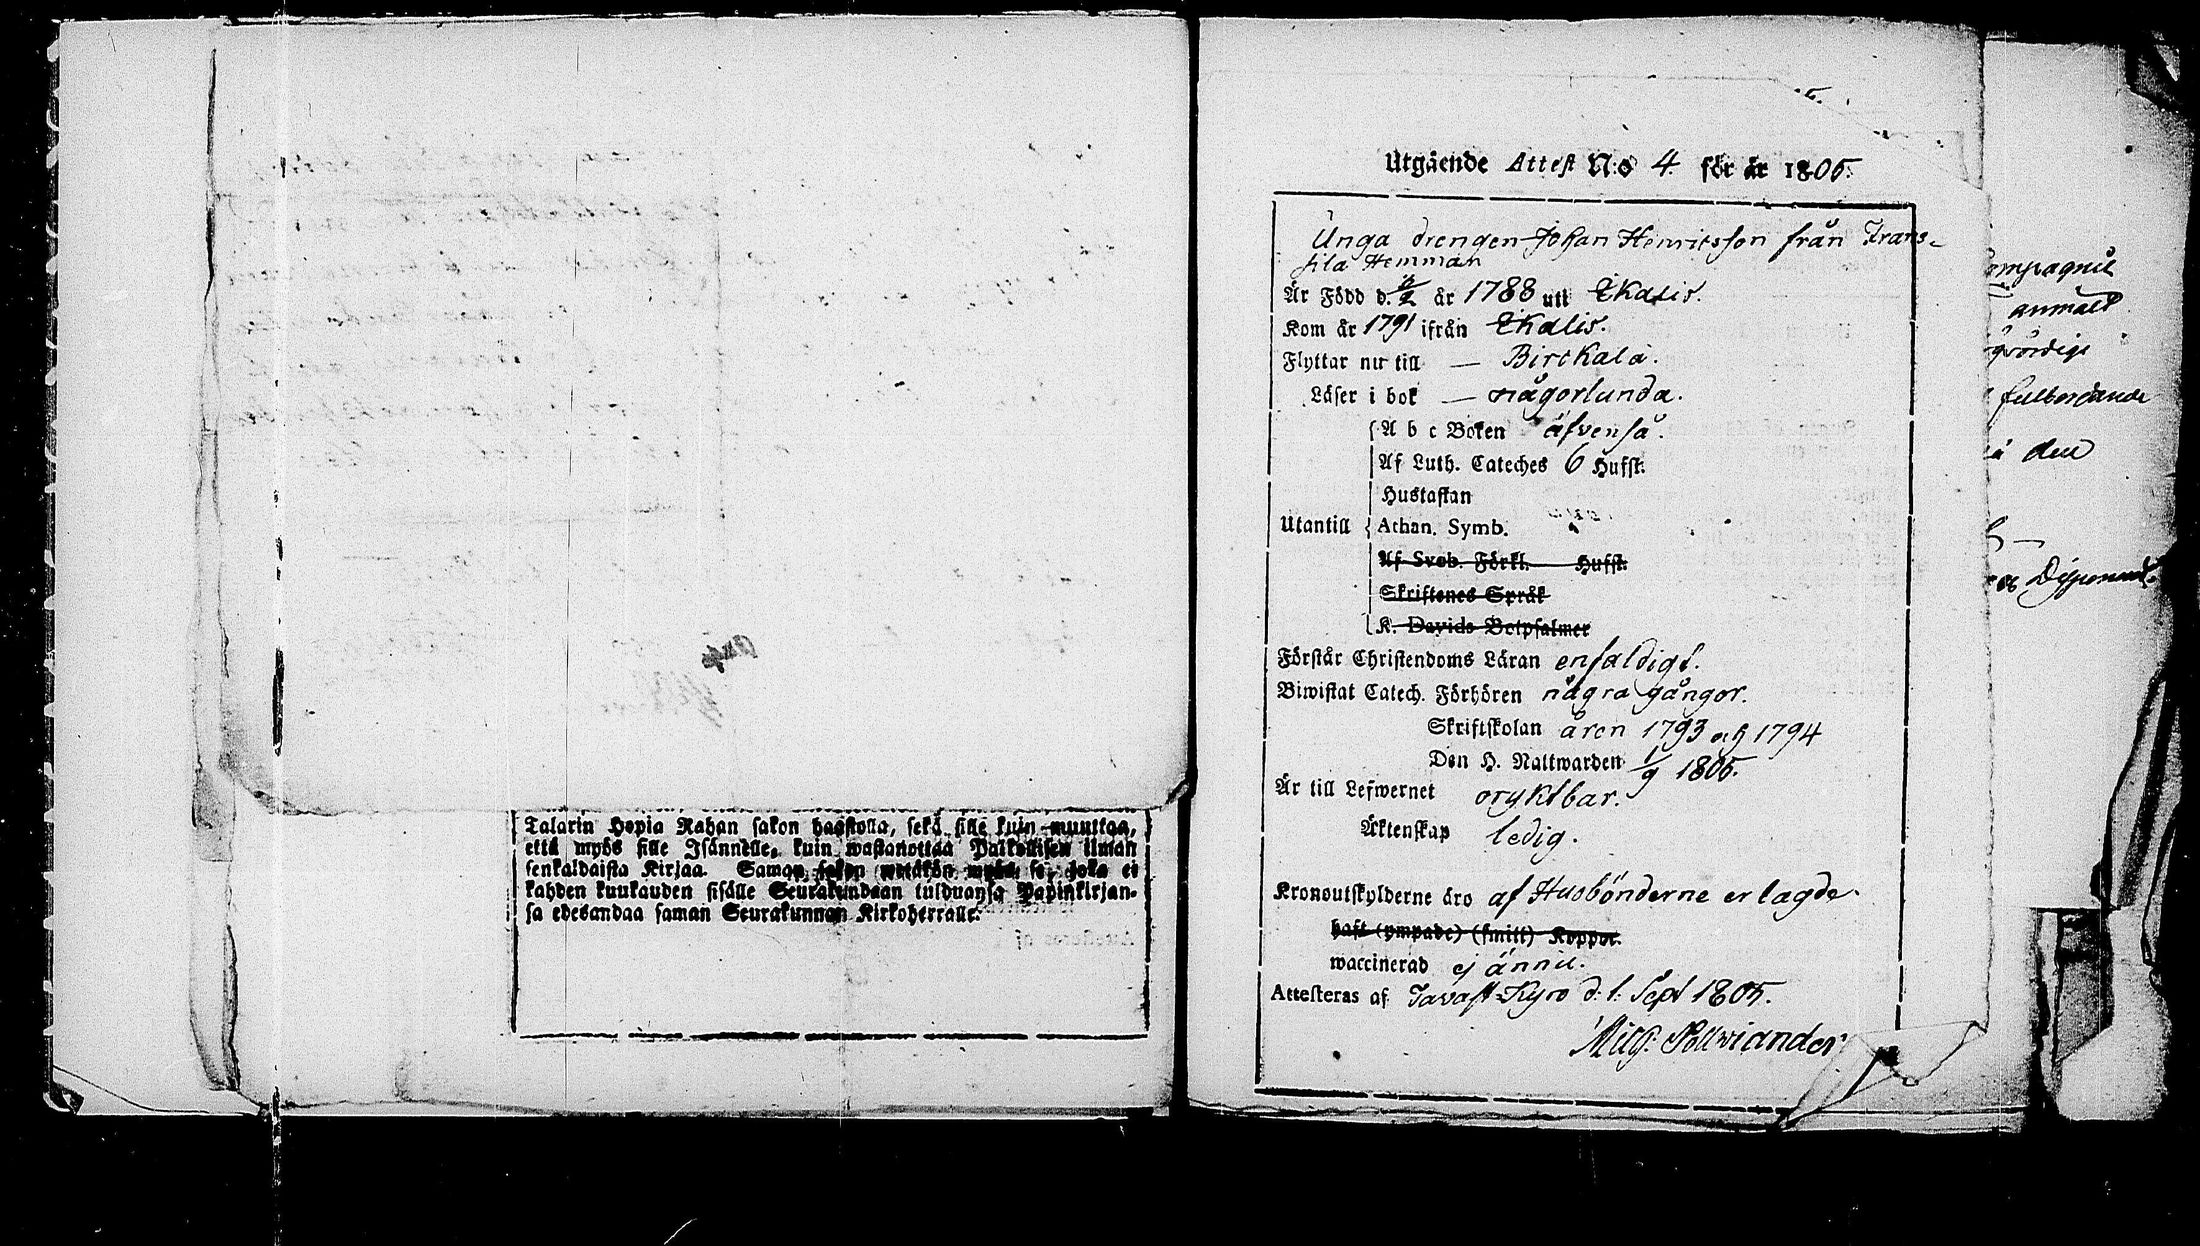 Talarin Hopia Rahan sakon haastolla, sekä sille kuin muuttaa,
että myös sille Isännelle, kuin wastanottaa Palkollisen ilman
senkaldaista Kirjaa. Saman sakon wetäkön myös se, joka ei
kahden kuukauden sisälle Seurakundaan tulduansa Papinkirjan-
sa edesandaa saman Seurakunnan Kirkoherralle.
Utgående Attest N:o 4. för år 1805.
Unga drengen Johan Henricsson från Trans-
sila Hemman
Är Född d. år 1788 uti Ikalis.
Kom år 1791 ifrån Ikalis.
Flyttar nu till — Birckala.
Läser i bok — någorlunda.
A b c Boken äfvenså.
Af Luth. Cateches 6 Hufst.
Hustaflan
Utantill Athan. Symb.
Af Sveb. Förkl. Hufst.
Skriftenes Språk
K. Davids Botpsalmer
Förstår Christendoms Läran enfaldigt.
Biwistat Catech. Förhören några gångor.
Skriftskolan åren 1793 och 1794
Den H. Nattwarden 1/9 1805.
Är till Lefwernet oryktbar.
Äktenskap ledig.
Kronoutskylderne äro af Husbönderne erlagde.
haft (ympade) (smitt) Koppor.
waccinerad ej ännu.
Attesteras af Tavast-Kyro d: 1: Sept 1805.
compagnie
anmält
fulbordande
den